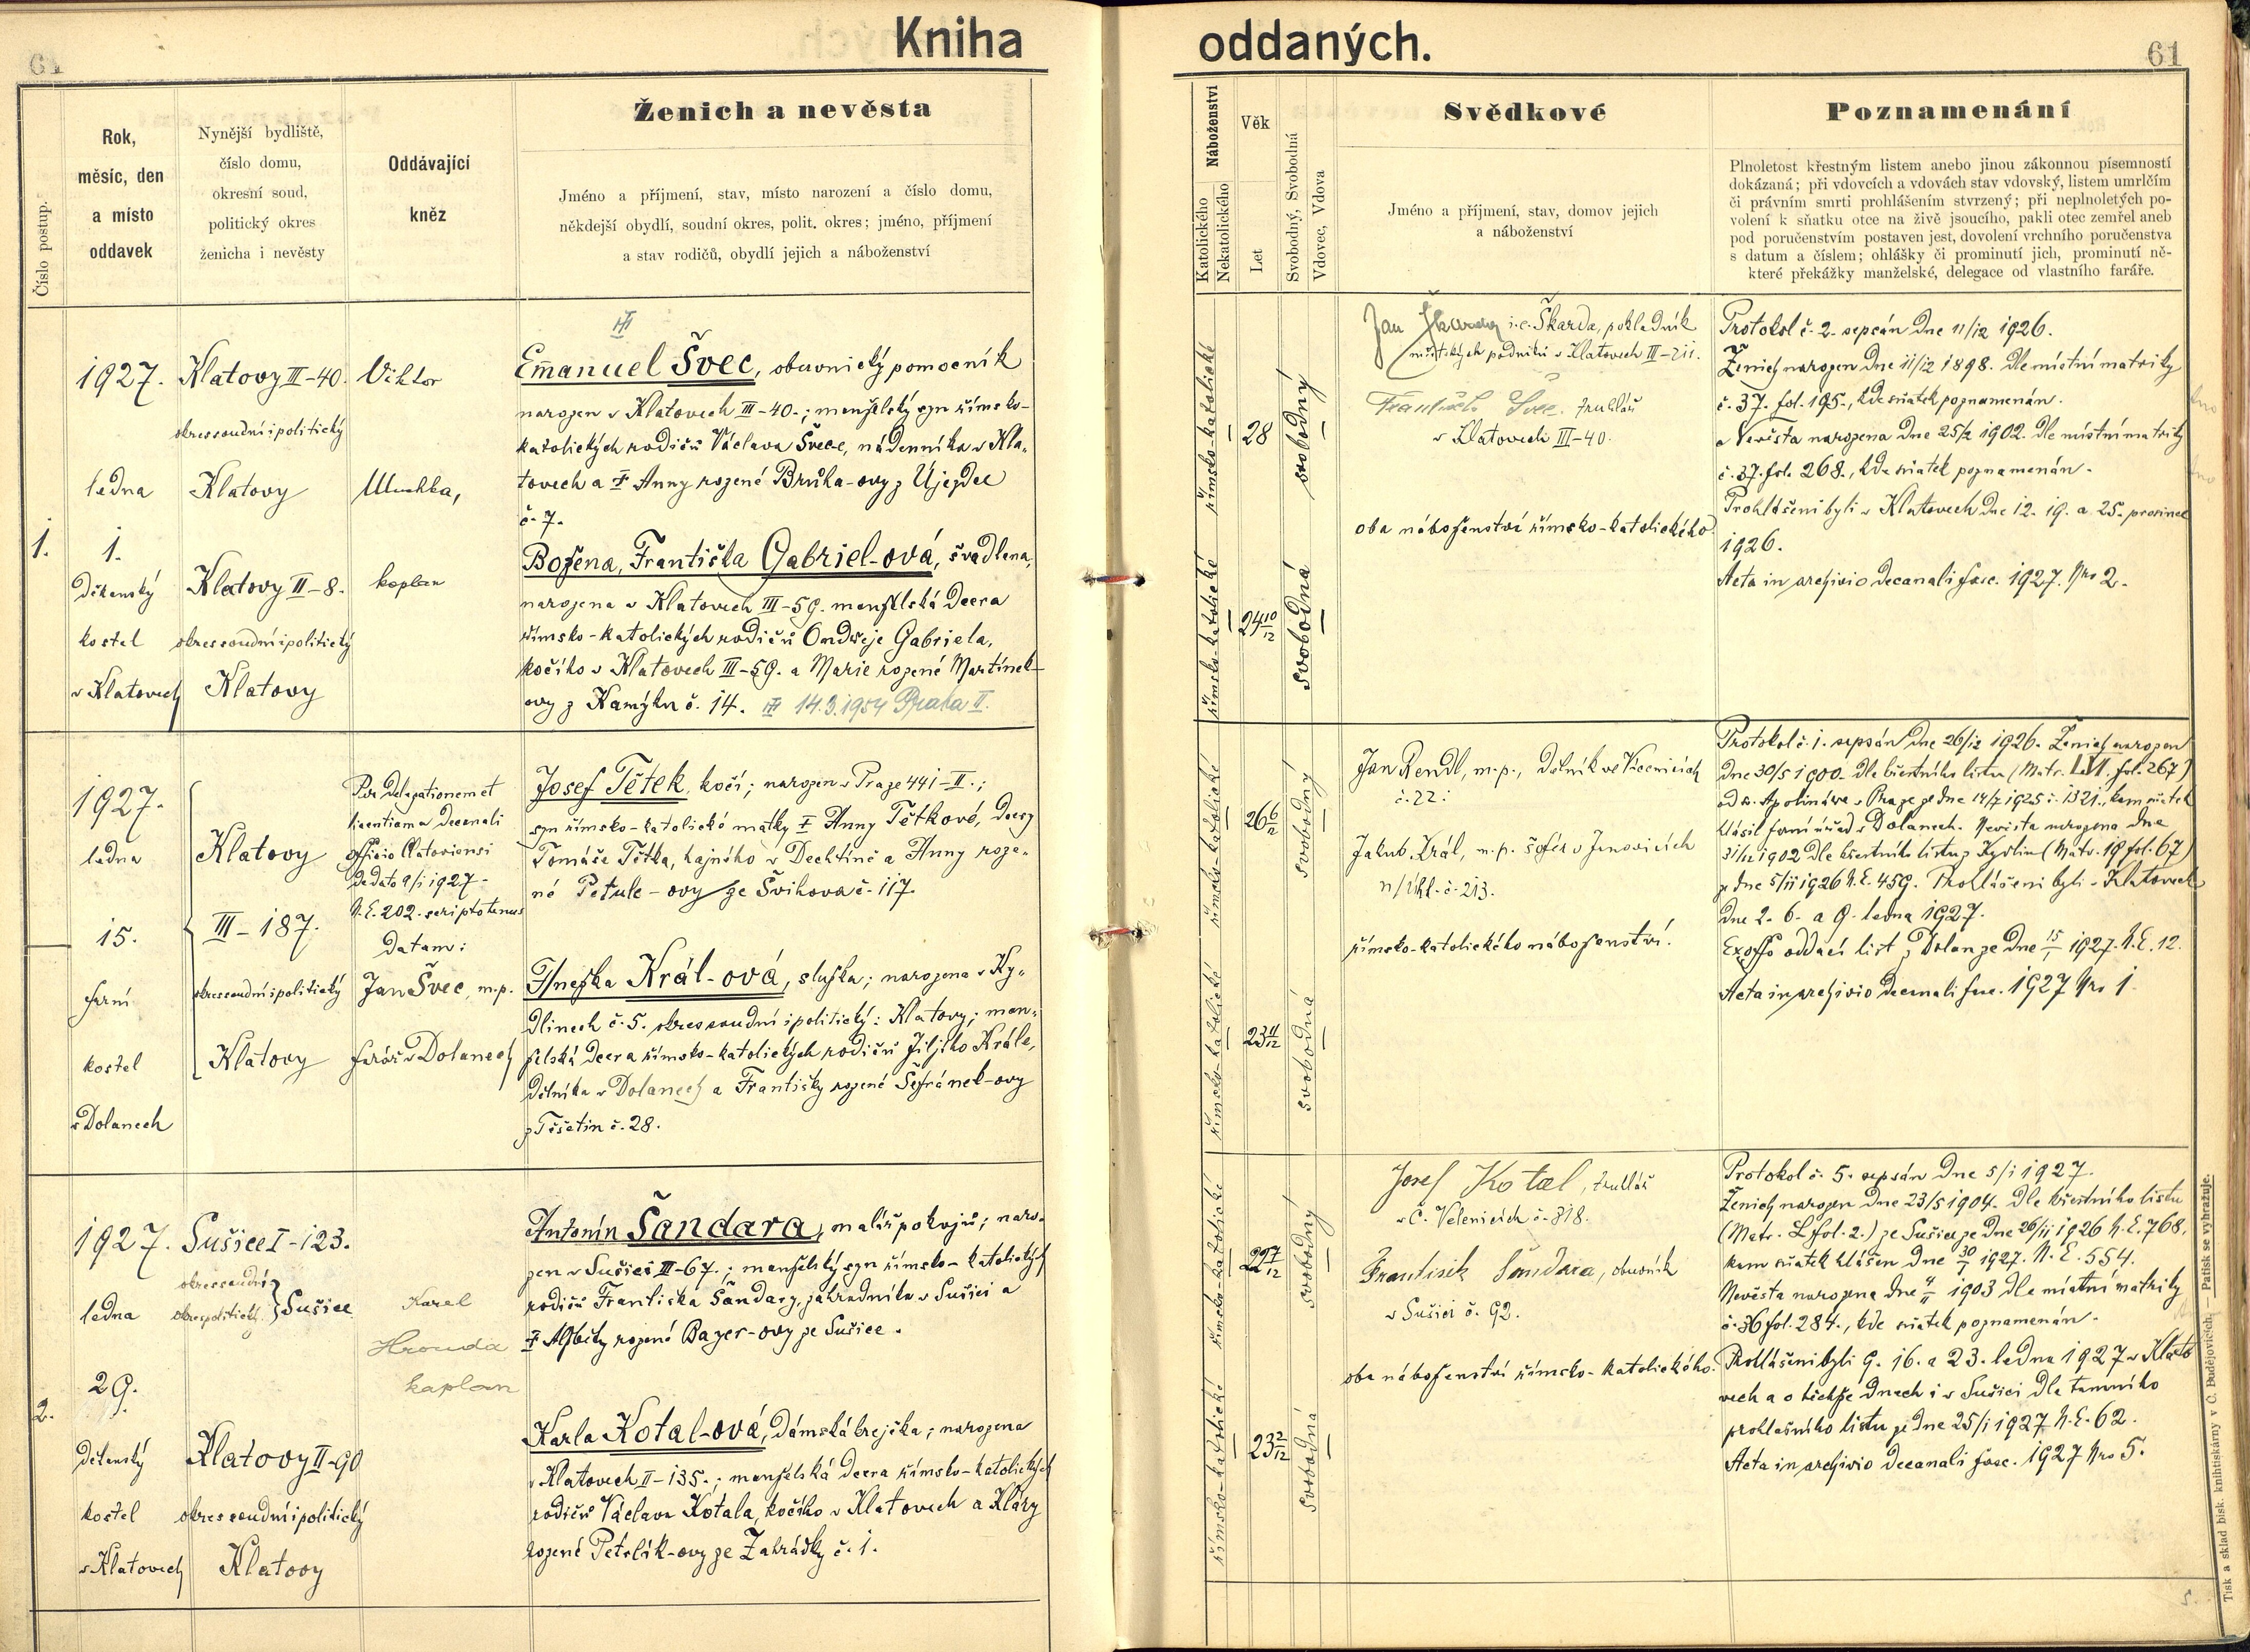 Kniha oddaných.
61
61
Číslo postup.
Rok,
měsíc, den
a místo
oddavek
Nynější bydliště,
číslo domu,
okresní soud,
politický okres
ženicha i nevěsty
Oddávající
kněz
Ženich a nevěsta
Jméno a příjmení, stav, místo narození a číslo domu,
někdejší obydlí, soudní okres, polit. okres; jméno, příjmení
a stav rodičů, obydlí jejich a náboženství
Náboženství
Katolického
Nekatolického
Věk
Let
Svobodný, Svobodná
Vdovec, Vdova
Svědkové
Jméno a příjmení, stav, domov jejich
a náboženství
Poznamenání
Plnoletost křestným listem anebo jinou zákonnou písemností
dokázaná; při vdovcích a vdovách stav vdovský, listem umrlčím
či právním smrti prohlášením stvrzený; při neplnoletých po-
volení k sňatku otce na živě jsoucího, pakli otec zemřel aneb
pod poručenstvím postaven jest, dovolení vrchního poručenstva
s datum a číslem; ohlášky či prominutí jich, prominutí ně-
které překážky manželské, delegace od vlastního faráře.
1.
1927.
ledna
1.
děkanský
kostel
v Klatovech
Klatovy III-40.
okres soudní i politický
Klatovy
Klatovy II-8.
okres soudní i politický
Klatovy
Viktor
kaplan
Emanuel Švec, obuvnický pomocník
narozen v Klatovech III-40.; manželský syn římsko-
katolických rodičů Václava Švece, nádenníka v Kla-
tovech a † Anny rozené Brůha-ovy z Újezdce
č. 7.
Božena, Františka Gabriel-ová, švadlena,
narozena v Klatovech III-59. manželská dcera
římsko-katolických rodičů Ondřeje Gabriela,
kočího v Klatovech III-59. a Marie rozené Martínek-
ovy z Kamýku č. 14. 14.3.1954 Praha II.
římsko-katolické
28
svobodný
římsko-katolické
24 10/12
svobodná
Jan Škarda i.e. Škarda, pokladník
městských podniků v Klatovech III-211.
František Švec, truhlář
v Klatovech III-40.
oba náboženství římsko-katolického.
Protokol č. 2. sepsán dne 11/12 1926.
Ženich narozen dne 11/12 1898. dle místní matriky
č. 37. fol. 195., kde sňatek poznamenán.
a Nevěsta narozena dne 25/2 1902. dle místní matriky
č. 37. fol. 268., kde sňatek poznamenán.
Prohlášeni byli v Klatovech dne 12. 19. a 25. prosince
1926.
Acta in archivio decanali fasc. 1927. Nro 2.
1927.
ledna
15.
farní
kostel
v Dolanech
Klatovy
III-187.
okres soudní i politický
Klatovy
Per delegationem et
licentiam a decanali
officio Clatoviensi
de dato 9/1 1927
N.E. 202. scripto tenus
datam:
Jan Švec, m.p.
farář v Dolanech
Josef Tětek, kočí; narozen v Praze 441-II.;
syn římsko-katolické matky † Anny Tětkové, dcery
Tomáše Tětka, hajného v Dechtíně a Anny roze-
né Petule-ovy ze Švihova č. 117.
Anežka Král-ová, služka; narozena v Ky-
dlinech č. 5. okres soudní i politický: Klatovy; man-
želská dcera římsko-katolických rodičů Jiljího Krále,
dělníka v Dolanech a Františky rozené Šafránek-ovy
z Těšetin č. 28.
římsko-katolické
26 6/12
svobodný
římsko-katolické
23 11/12
svobodná
Jan Rendl, m.p., dělník ve Vícenicích
č. 22.
Jakub Král, m.p. šofér v Janovicích
n/Úhl. č. 213.
římsko-katolického náboženství.
Protokol č. 1. sepsán dne 26/12 1926. Ženich narozen
dne 30/5 1900. dle křestního listu (Matr. LVI. fol. 267)
od sv. Apolináře v Praze ze dne 14/7 1925 č. 1321., kam sňatek
hlásil farní úřad v Dolanech. Nevěsta narozena dne
31/12 1902 dle křestního listu z Kydlin (Matr. 18 fol. 67)
ze dne 5/11 1926 N.E. 459. Prohlášeni byli v Klatovech
dne 2. 6. a 9. ledna 1927.
Ex offo oddací list z Dolan ze dne 15/1 1927. N.E. 12.
Acta in archivio decanali fasc. 1927 Nro 1.
2.
1927.
ledna
29.
děkanský
kostel
v Klatovech
Sušice I-123.
okres soudní
okres politický } Sušice
Klatovy II-90
okres soudní i politický
Klatovy
Karel
Hrouda
kaplan
Antonín Šandara, malíř pokojů; naro-
zen v Sušici III-67.; manželský syn římsko-katolických
rodičů Františka Šandary, zahradníka v Sušici a
† Alžběty rozené Bayer-ovy ze Sušice.
Karla Kotal-ová, dámská krejčka; narozena
v Klatovech II-135.; manželská dcera římsko-katolických
rodičů Václava Kotala, kočího v Klatovech a Kláry
rozené Petrlík-ovy ze Zahrádky č. 1.
římsko-katolické
22 7/12
svobodný
římsko-katolické
23 2/12
svobodná
Josef Kotal, truhlář
v Č. Velenicích č. 318.
František Šandara, obuvník
v Sušici č. 92.
oba náboženství římsko-katolického.
Protokol č. 5. sepsán dne 5/1 1927.
Ženich narozen dne 23/5 1904. dle křestního listu
(Matr. L fol. 2.) ze Sušice ze dne 26/11 1926 N.E. 768.
kam sňatek hlášen dne 30/1 1927. N.E. 554.
Nevěsta narozena dne 4/11 1903 dle místní matriky
č. 36 fol. 284., kde sňatek poznamenán.
Prohlášeni byli 9. 16. a 23. ledna 1927 v Klato
vech a o těchže dnech i v Sušici dle tamního
prohlašního listu ze dne 25/1 1927 N.E. 62.
Acta in archivio decanali fasc. 1927 Nro 5.
Tisk a sklad bisk. knihtiskárny v Č. Budějovicích. — Patisk se vyhražuje.